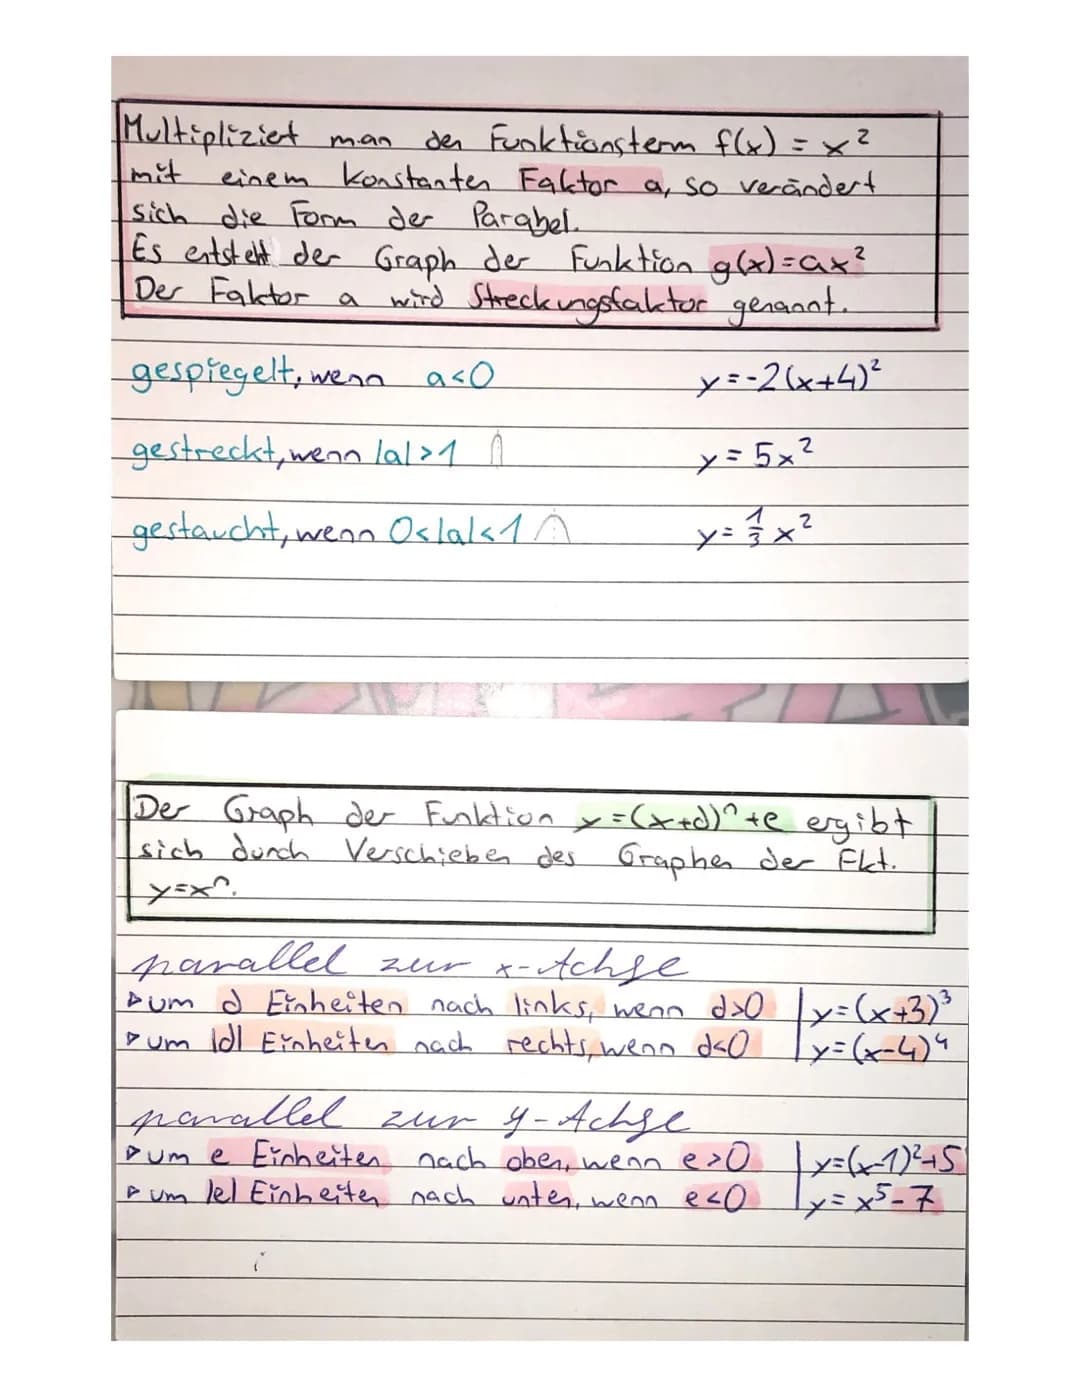 Multipliziert man den Funktionsterm f(x) = x²
mit einem konstanten Faktor a, so verändert
sich die Form der Parabel.
Es entsteht der Graph der Funktion g(x)=ax²
Der Faktor a wird Streckungsfaktor genannt.
gespiegelt, wenn a<0 y=-2(x+4)²
gestreckt, wenn |a|>1 y=5x²
gestaucht, wenn 0<|a|<1 y=⅓x²
Der Graph der Funktion y=(x+d)ⁿ+e ergibt
sich durch Verschieben des Graphen der Fkt.
y=xⁿ.
parallel zur x-Achse
▷ um d Einheiten nach links, wenn d>0 | y=(x+3)³
▷ um |d| Einheiten nach rechts, wenn d<0 | y=(x-4)⁴
parallel zur y-Achse
▷ um e Einheiten nach oben, wenn e>0 | y=(x-1)²+5
▷ um |e| Einheiten nach unten, wenn e<0 | y=x⁵-7